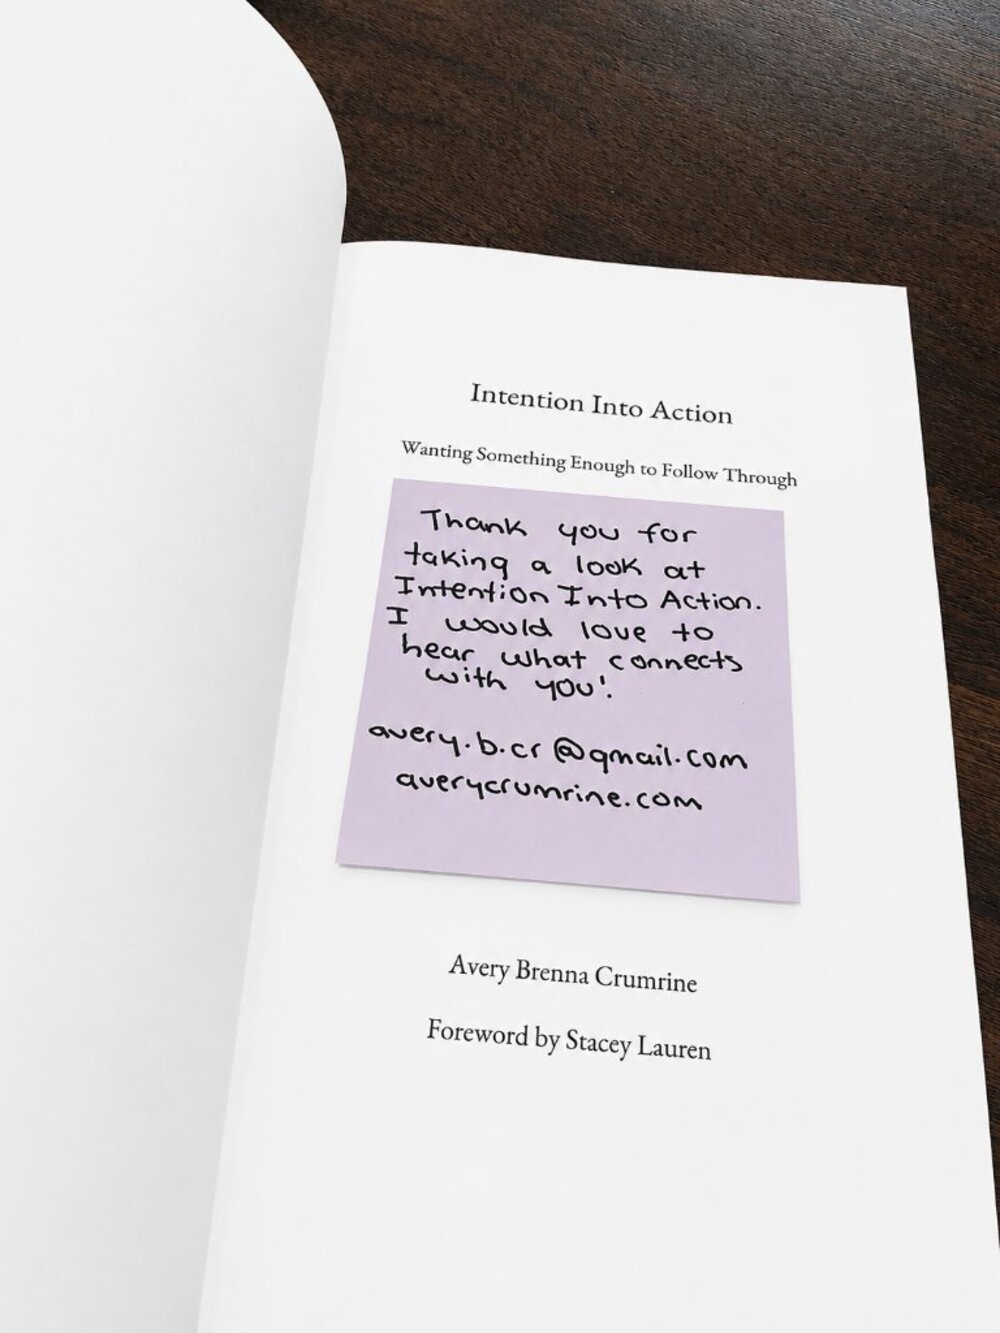 Intention Into Action
Wanting Something Enough to Follow Through
Thank you for
taking a look at
Intention Into Action.
I would love to
hear what connects
with you!
avery.b.cr@gmail.com
averycrumrine.com
Avery Brenna Crumrine
Foreword by Stacey Lauren